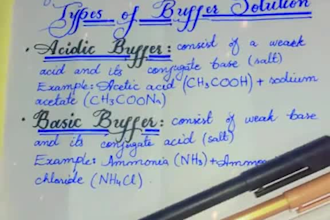 Types of Buffer Solution
• Acidic Buffer: consist of a weak
acid and its conjugate base (salt)
Example: Acetic acid (CH₃COOH) + sodium
acetate (CH₃COONa)
• Basic Buffer: consist of weak base
and its conjugate acid (salt)
Example: Ammonia (NH₃) + Ammo
chloride (NH₄Cl).